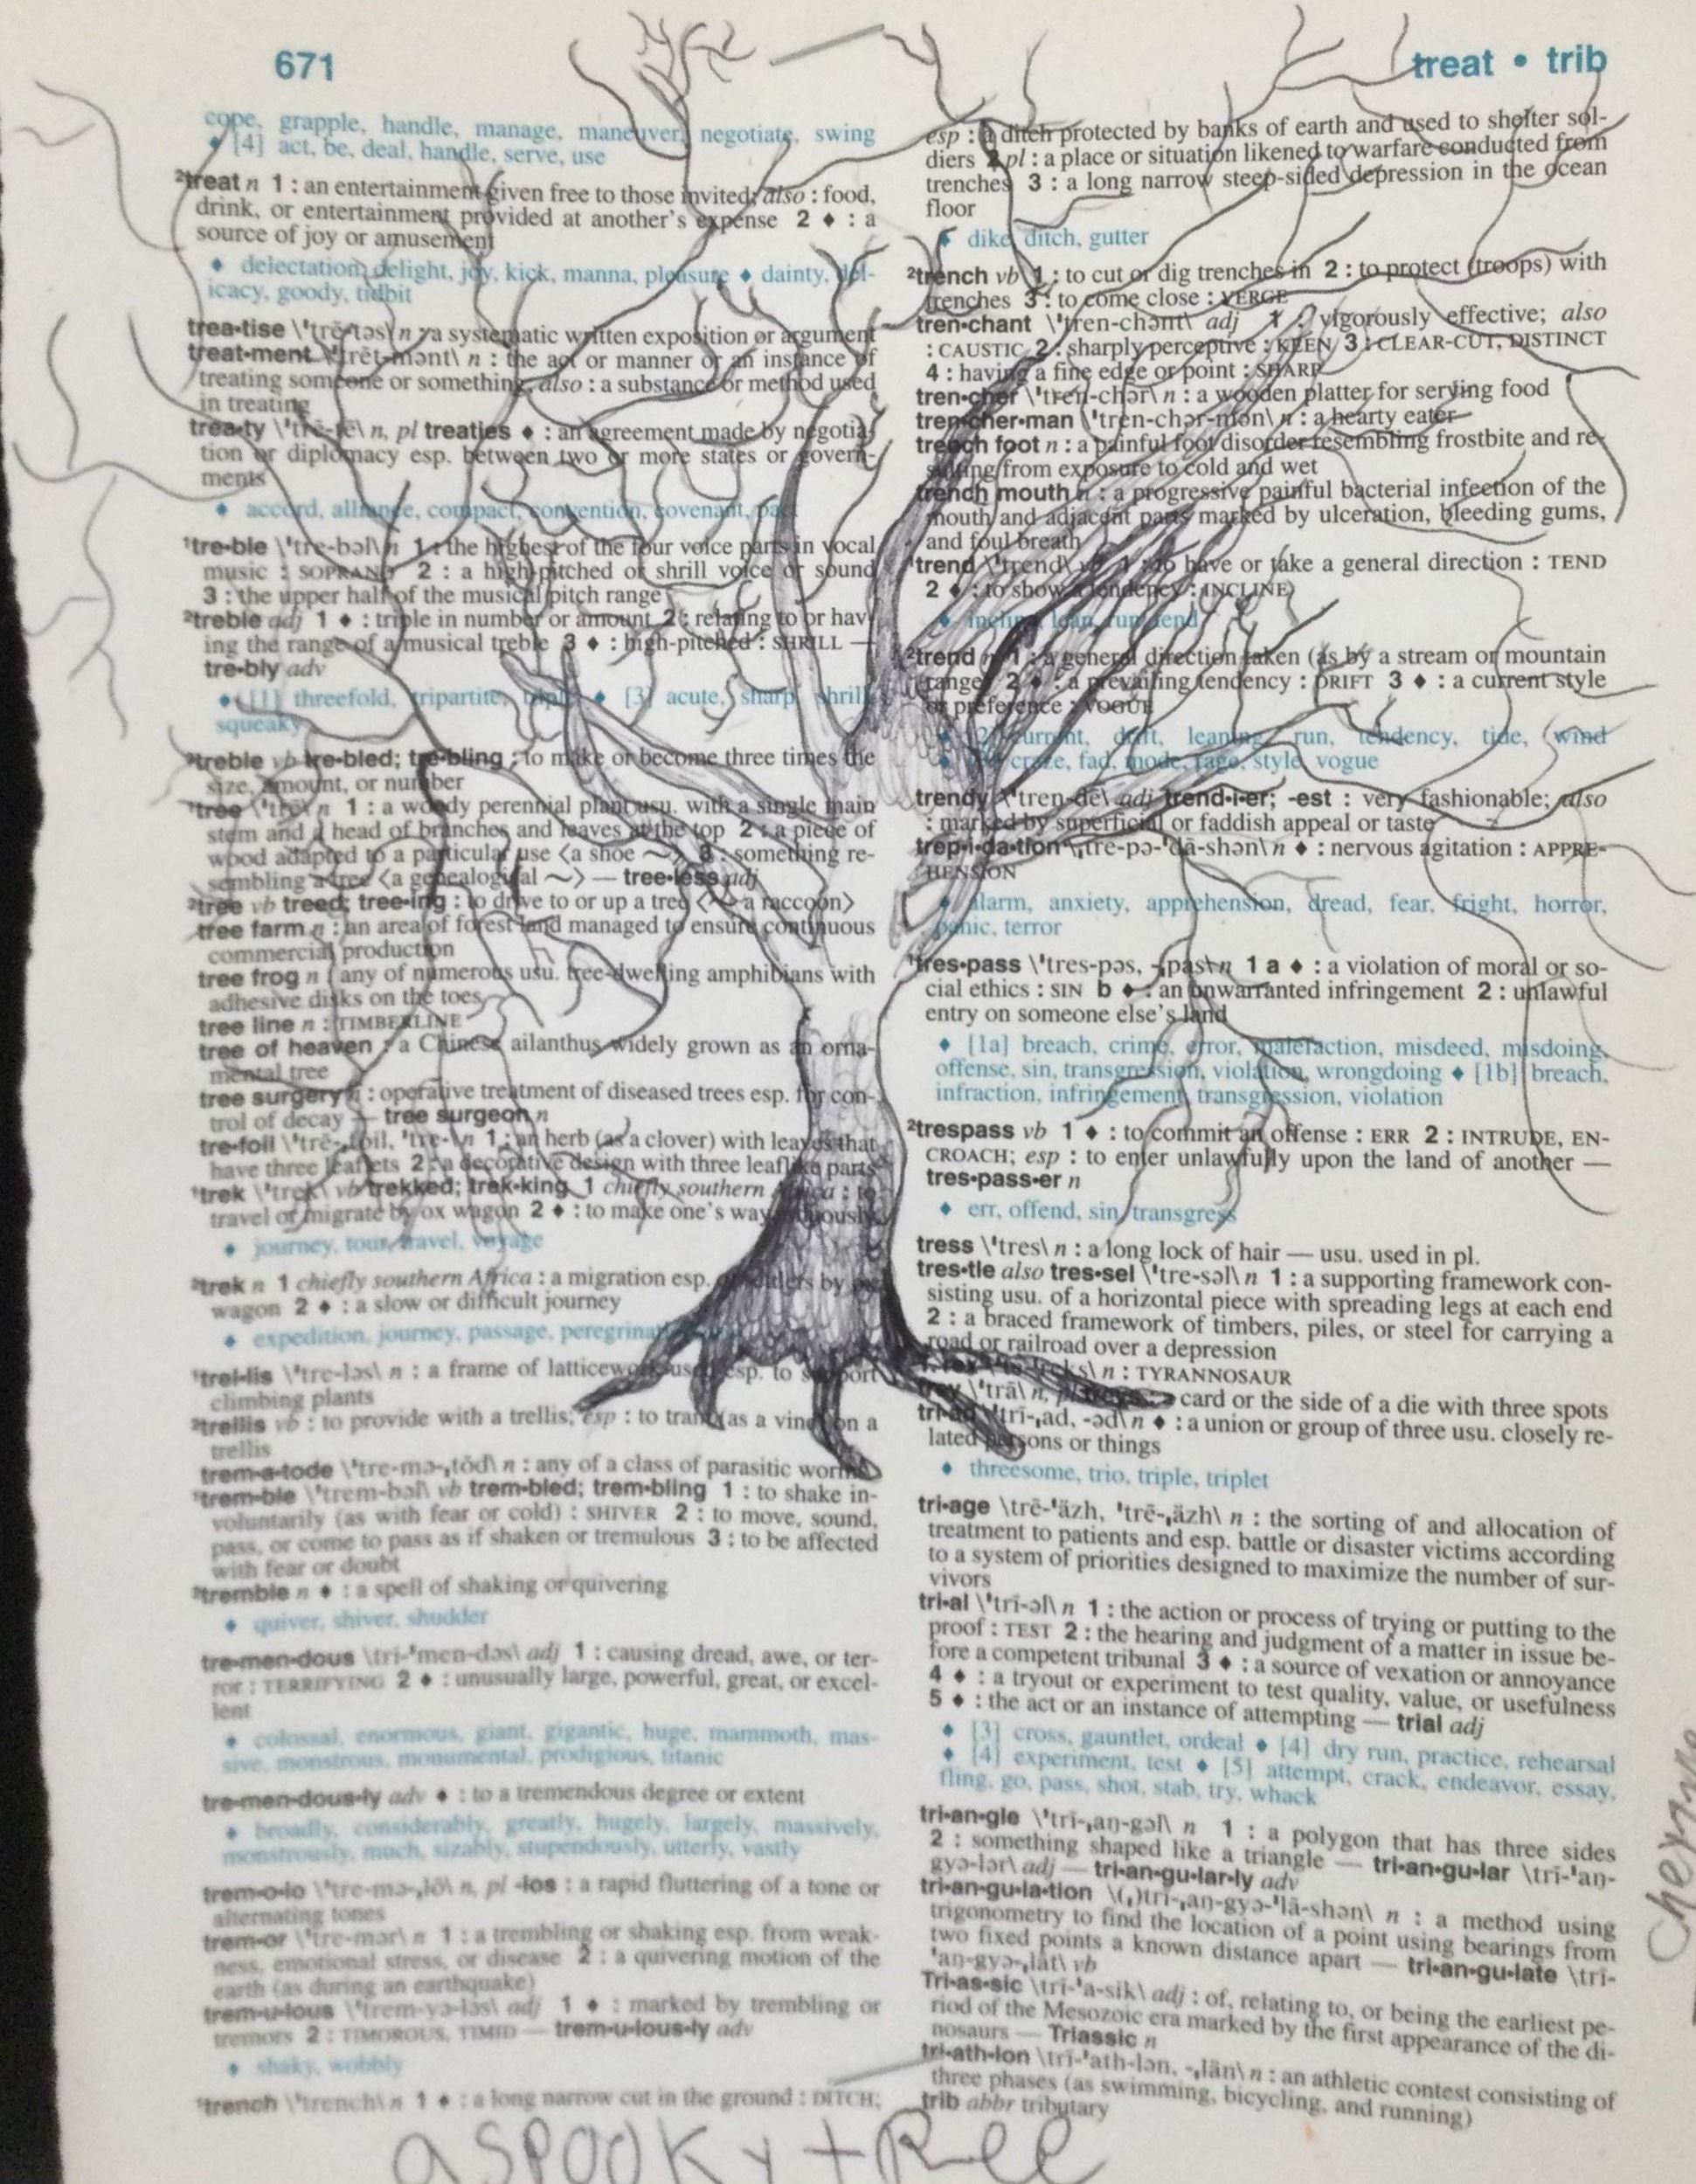 671
treat • trib
cope, grapple, handle, manage, maneuver, negotiate, swing
♦ [4] act, be, deal, handle, serve, use
²treat n 1 : an entertainment given free to those invited; also : food,
drink, or entertainment provided at another's expense 2 ♦ : a
source of joy or amusement
♦ delectation, delight, joy, kick, manna, pleasure ♦ dainty, del-
icacy, goody, tidbit
trea•tise \ˈtrē-təs\ n : a systematic written exposition or argument
treat•ment \ˈtrēt-mənt\ n : the act or manner or an instance of
treating someone or something; also : a substance or method used
in treating
trea•ty \ˈtrē-tē\ n, pl treaties ♦ : an agreement made by negotia-
tion or diplomacy esp. between two or more states or govern-
ments
♦ accord, alliance, compact, convention, covenant, pact
¹tre•ble \ˈtre-bəl\ n 1 : the highest of the four voice parts in vocal
music : SOPRANO 2 : a high-pitched or shrill voice or sound
3 : the upper half of the musical pitch range
²treble adj 1 ♦ : triple in number or amount 2 : relating to or hav-
ing the range of a musical treble 3 ♦ : high-pitched : SHRILL —
tre•bly adv
♦ [1] threefold, tripartite, triple ♦ [3] acute, sharp, shrill,
squeaky
³treble vb tre•bled; tre•bling : to make or become three times the
size, amount, or number
¹tree \ˈtrē\ n 1 : a woody perennial plant usu. with a single main
stem and a head of branches and leaves at the top 2 : a piece of
wood adapted to a particular use <a shoe ~> 3 : something re-
sembling a tree <a genealogical ~> — tree•less adj
²tree vb treed; tree•ing : to drive to or up a tree <~ a raccoon>
tree farm n : an area of forest land managed to ensure continuous
commercial production
tree frog n : any of numerous usu. tree-dwelling amphibians with
adhesive disks on the toes
tree line n : TIMBERLINE
tree of heaven : a Chinese ailanthus widely grown as an orna-
mental tree
tree surgery n : operative treatment of diseased trees esp. for con-
trol of decay — tree surgeon n
tre•foil \ˈtrē-ˌfoil, ˈtre-\ n 1 : an herb (as a clover) with leaves that
have three leaflets 2 : a decorative design with three leaflike parts
¹trek \ˈtrek\ vb trekked; trek•king 1 chiefly southern Africa : to
travel or migrate by ox wagon 2 ♦ : to make one's way arduously
♦ journey, tour, travel, voyage
²trek n 1 chiefly southern Africa : a migration esp. of settlers by ox
wagon 2 ♦ : a slow or difficult journey
♦ expedition, journey, passage, peregrination
¹trel•lis \ˈtre-ləs\ n : a frame of latticework used esp. to support
climbing plants
²trellis vb : to provide with a trellis; esp : to train (as a vine) on a
trellis
trem•a•tode \ˈtre-mə-ˌtōd\ n : any of a class of parasitic worms
¹trem•ble \ˈtrem-bəl\ vb trem•bled; trem•bling 1 : to shake in-
voluntarily (as with fear or cold) : SHIVER 2 : to move, sound,
pass, or come to pass as if shaken or tremulous 3 : to be affected
with fear or doubt
²tremble n ♦ : a spell of shaking or quivering
♦ quiver, shiver, shudder
tre•men•dous \tri-ˈmen-dəs\ adj 1 : causing dread, awe, or ter-
ror : TERRIFYING 2 ♦ : unusually large, powerful, great, or excel-
lent
♦ colossal, enormous, giant, gigantic, huge, mammoth, mas-
sive, monstrous, monumental, prodigious, titanic
tre•men•dous•ly adv ♦ : to a tremendous degree or extent
♦ broadly, considerably, greatly, hugely, largely, massively,
monstrously, much, sizably, stupendously, utterly, vastly
trem•o•lo \ˈtre-mə-ˌlō\ n, pl -los : a rapid fluttering of a tone or
alternating tones
trem•or \ˈtre-mər\ n 1 : a trembling or shaking esp. from weak-
ness, emotional stress, or disease 2 : a quivering motion of the
earth (as during an earthquake)
trem•u•lous \ˈtrem-yə-ləs\ adj 1 ♦ : marked by trembling or
tremors 2 : TIMOROUS, TIMID — trem•u•lous•ly adv
♦ shaky, wobbly
¹trench \ˈtrench\ n 1 ♦ : a long narrow cut in the ground : DITCH;
esp : a ditch protected by banks of earth and used to shelter sol-
diers 2 pl : a place or situation likened to warfare conducted from
trenches 3 : a long narrow steep-sided depression in the ocean
floor
♦ dike, ditch, gutter
²trench vb 1 : to cut or dig trenches in 2 : to protect (troops) with
trenches 3 : to come close : VERGE
tren•chant \ˈtren-chənt\ adj 1 : vigorously effective; also
: CAUSTIC 2 : sharply perceptive : KEEN 3 : CLEAR-CUT, DISTINCT
4 : having a fine edge or point : SHARP
tren•cher \ˈtren-chər\ n : a wooden platter for serving food
tren•cher•man \ˈtren-chər-mən\ n : a hearty eater
trench foot n : a painful foot disorder resembling frostbite and re-
sulting from exposure to cold and wet
trench mouth n : a progressive painful bacterial infection of the
mouth and adjacent parts marked by ulceration, bleeding gums,
and foul breath
¹trend \ˈtrend\ vb 1 : to have or take a general direction : TEND
2 ♦ : to show a tendency : INCLINE
♦ incline, lean, run, tend
²trend n 1 : a general direction taken (as by a stream or mountain
range) 2 ♦ : a prevailing tendency : DRIFT 3 ♦ : a current style
or preference : VOGUE
♦ [2] current, drift, leaning, run, tendency, tide, wind
♦ [3] craze, fad, mode, rage, style, vogue
trendy \ˈtren-dē\ adj trend•i•er; -est : very fashionable; also
: marked by superficial or faddish appeal or taste
trep•i•da•tion \ˌtre-pə-ˈdā-shən\ n ♦ : nervous agitation : APPRE-
HENSION
♦ alarm, anxiety, apprehension, dread, fear, fright, horror,
panic, terror
¹tres•pass \ˈtres-pəs, -ˌpas\ n 1 a ♦ : a violation of moral or so-
cial ethics : SIN b ♦ : an unwarranted infringement 2 : unlawful
entry on someone else's land
♦ [1a] breach, crime, error, malefaction, misdeed, misdoing,
offense, sin, transgression, violation, wrongdoing ♦ [1b] breach,
infraction, infringement, transgression, violation
²trespass vb 1 ♦ : to commit an offense : ERR 2 : INTRUDE, EN-
CROACH; esp : to enter unlawfully upon the land of another —
tres•pass•er n
♦ err, offend, sin, transgress
tress \ˈtres\ n : a long lock of hair — usu. used in pl.
tres•tle also tres•sel \ˈtre-səl\ n 1 : a supporting framework con-
sisting usu. of a horizontal piece with spreading legs at each end
2 : a braced framework of timbers, piles, or steel for carrying a
road or railroad over a depression
T. rex n : TYRANNOSAUR
trey \ˈtrā\ n, pl card or the side of a die with three spots
tri•ad \ˈtrī-ˌad, -əd\ n ♦ : a union or group of three usu. closely re-
lated persons or things
♦ threesome, trio, triple, triplet
tri•age \trē-ˈäzh, ˈtrē-ˌäzh\ n : the sorting of and allocation of
treatment to patients and esp. battle or disaster victims according
to a system of priorities designed to maximize the number of sur-
vivors
tri•al \ˈtrī-əl\ n 1 : the action or process of trying or putting to the
proof : TEST 2 : the hearing and judgment of a matter in issue be-
fore a competent tribunal 3 ♦ : a source of vexation or annoyance
4 ♦ : a tryout or experiment to test quality, value, or usefulness
5 ♦ : the act or an instance of attempting — trial adj
♦ [3] cross, gauntlet, ordeal ♦ [4] dry run, practice, rehearsal
♦ [4] experiment, test ♦ [5] attempt, crack, endeavor, essay,
fling, go, pass, shot, stab, try, whack
tri•an•gle \ˈtrī-ˌaŋ-gəl\ n 1 : a polygon that has three sides
2 : something shaped like a triangle — tri•an•gu•lar \trī-ˈaŋ-
gyə-lər\ adj — tri•an•gu•lar•ly adv
tri•an•gu•la•tion \(ˌ)trī-ˌaŋ-gyə-ˈlā-shən\ n : a method using
trigonometry to find the location of a point using bearings from
two fixed points a known distance apart — tri•an•gu•late \trī-
ˈaŋ-gyə-ˌlāt\ vb
Tri•as•sic \trī-ˈa-sik\ adj : of, relating to, or being the earliest pe-
riod of the Mesozoic era marked by the first appearance of the di-
nosaurs — Triassic n
tri•ath•lon \trī-ˈath-lən, -ˌlän\ n : an athletic contest consisting of
three phases (as swimming, bicycling, and running)
trib abbr tributary
a spooky tRee